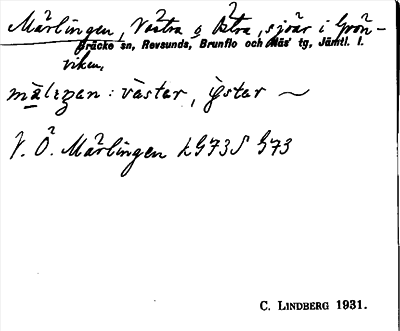 Märlingen, Västra o Östra, sjöar i Grön-
Bräcke sn, Revsunds, Brunflo och Näs' tg, Jämtl. l.
viken,
väster, ~
V. Ö. Märlingen LG73S G73
C. LINDBERG 1931.